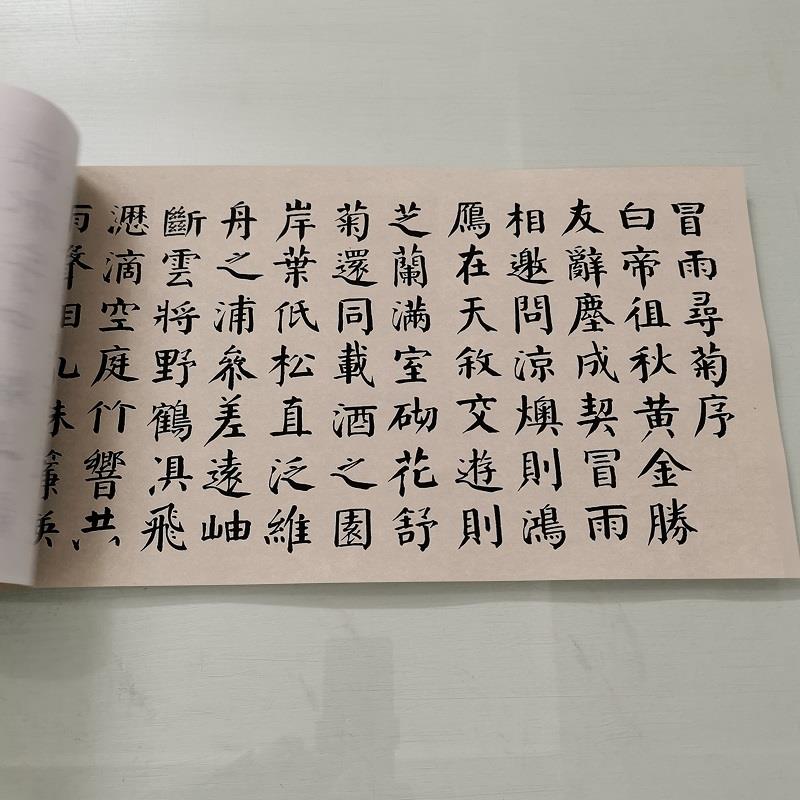 冒雨尋菊序
白帝徂秋黄金勝
友辭塵成契冒雨
相邀問涼燠則鴻
鴈在天敘交遊則
芝蘭滿室砌花舒
菊還同載酒之園
岸葉低松直泛維
舟之浦參差遠岫
斷雲將野鶴俱飛
瀝滴空庭竹響共
雨聲相